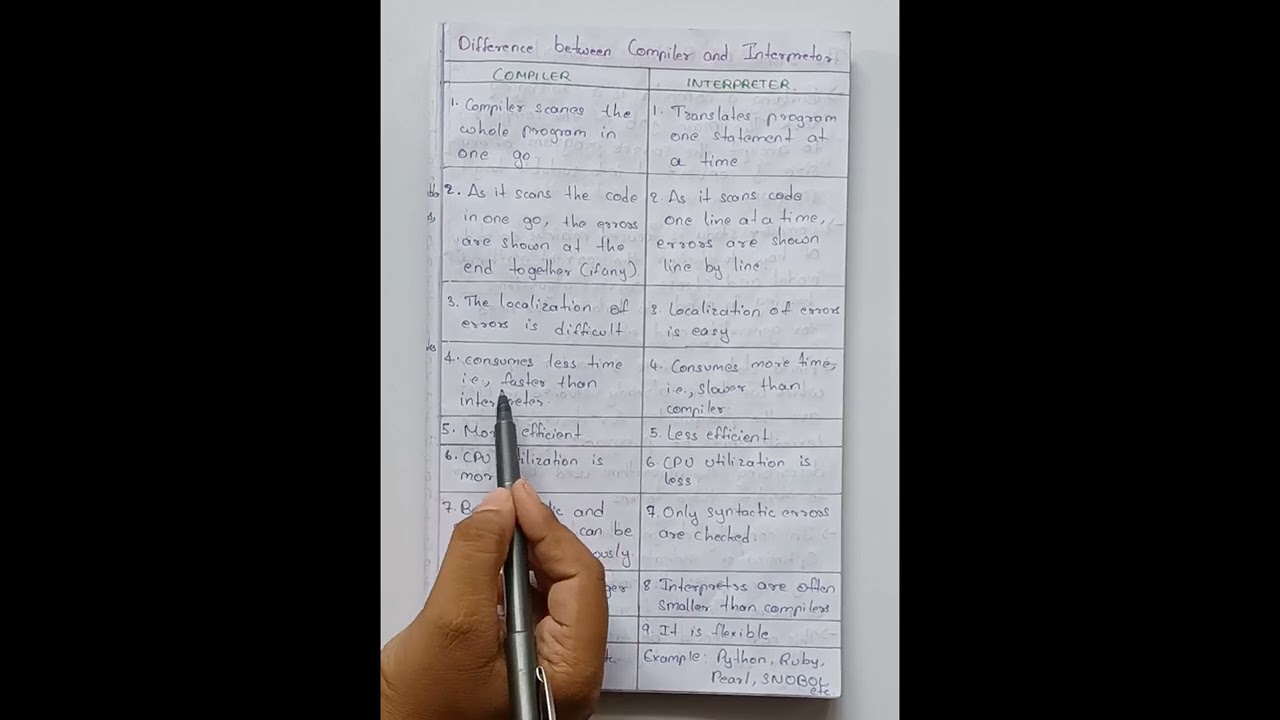 Difference between Compiler and Interpretor.
COMPILER
INTERPRETER.
1. Compiler scanes the
whole program in
one go.
1. Translates program
one statement at
a time
2. As it scans the code
in one go, the errors
are shown at the
end together (if any)
2. As it scans code
one line at a time,
errors are shown
line by line.
3. The localization of
errors is difficult.
3. Localization of errors
is easy
4. consumes less time
i.e., faster than
interpreter.
4. Consumes more time,
i.e., slower than
compiler
5. efficient
5. Less efficient.
6. CPU is
6. CPU utilization is
less.
7. and
can be
7. Only syntactic errors
are checked.
8. Interpretrs are often
smaller than compilers
9. It is flexible
Example: Python, Ruby,
Pearl, SNOBOL
etc